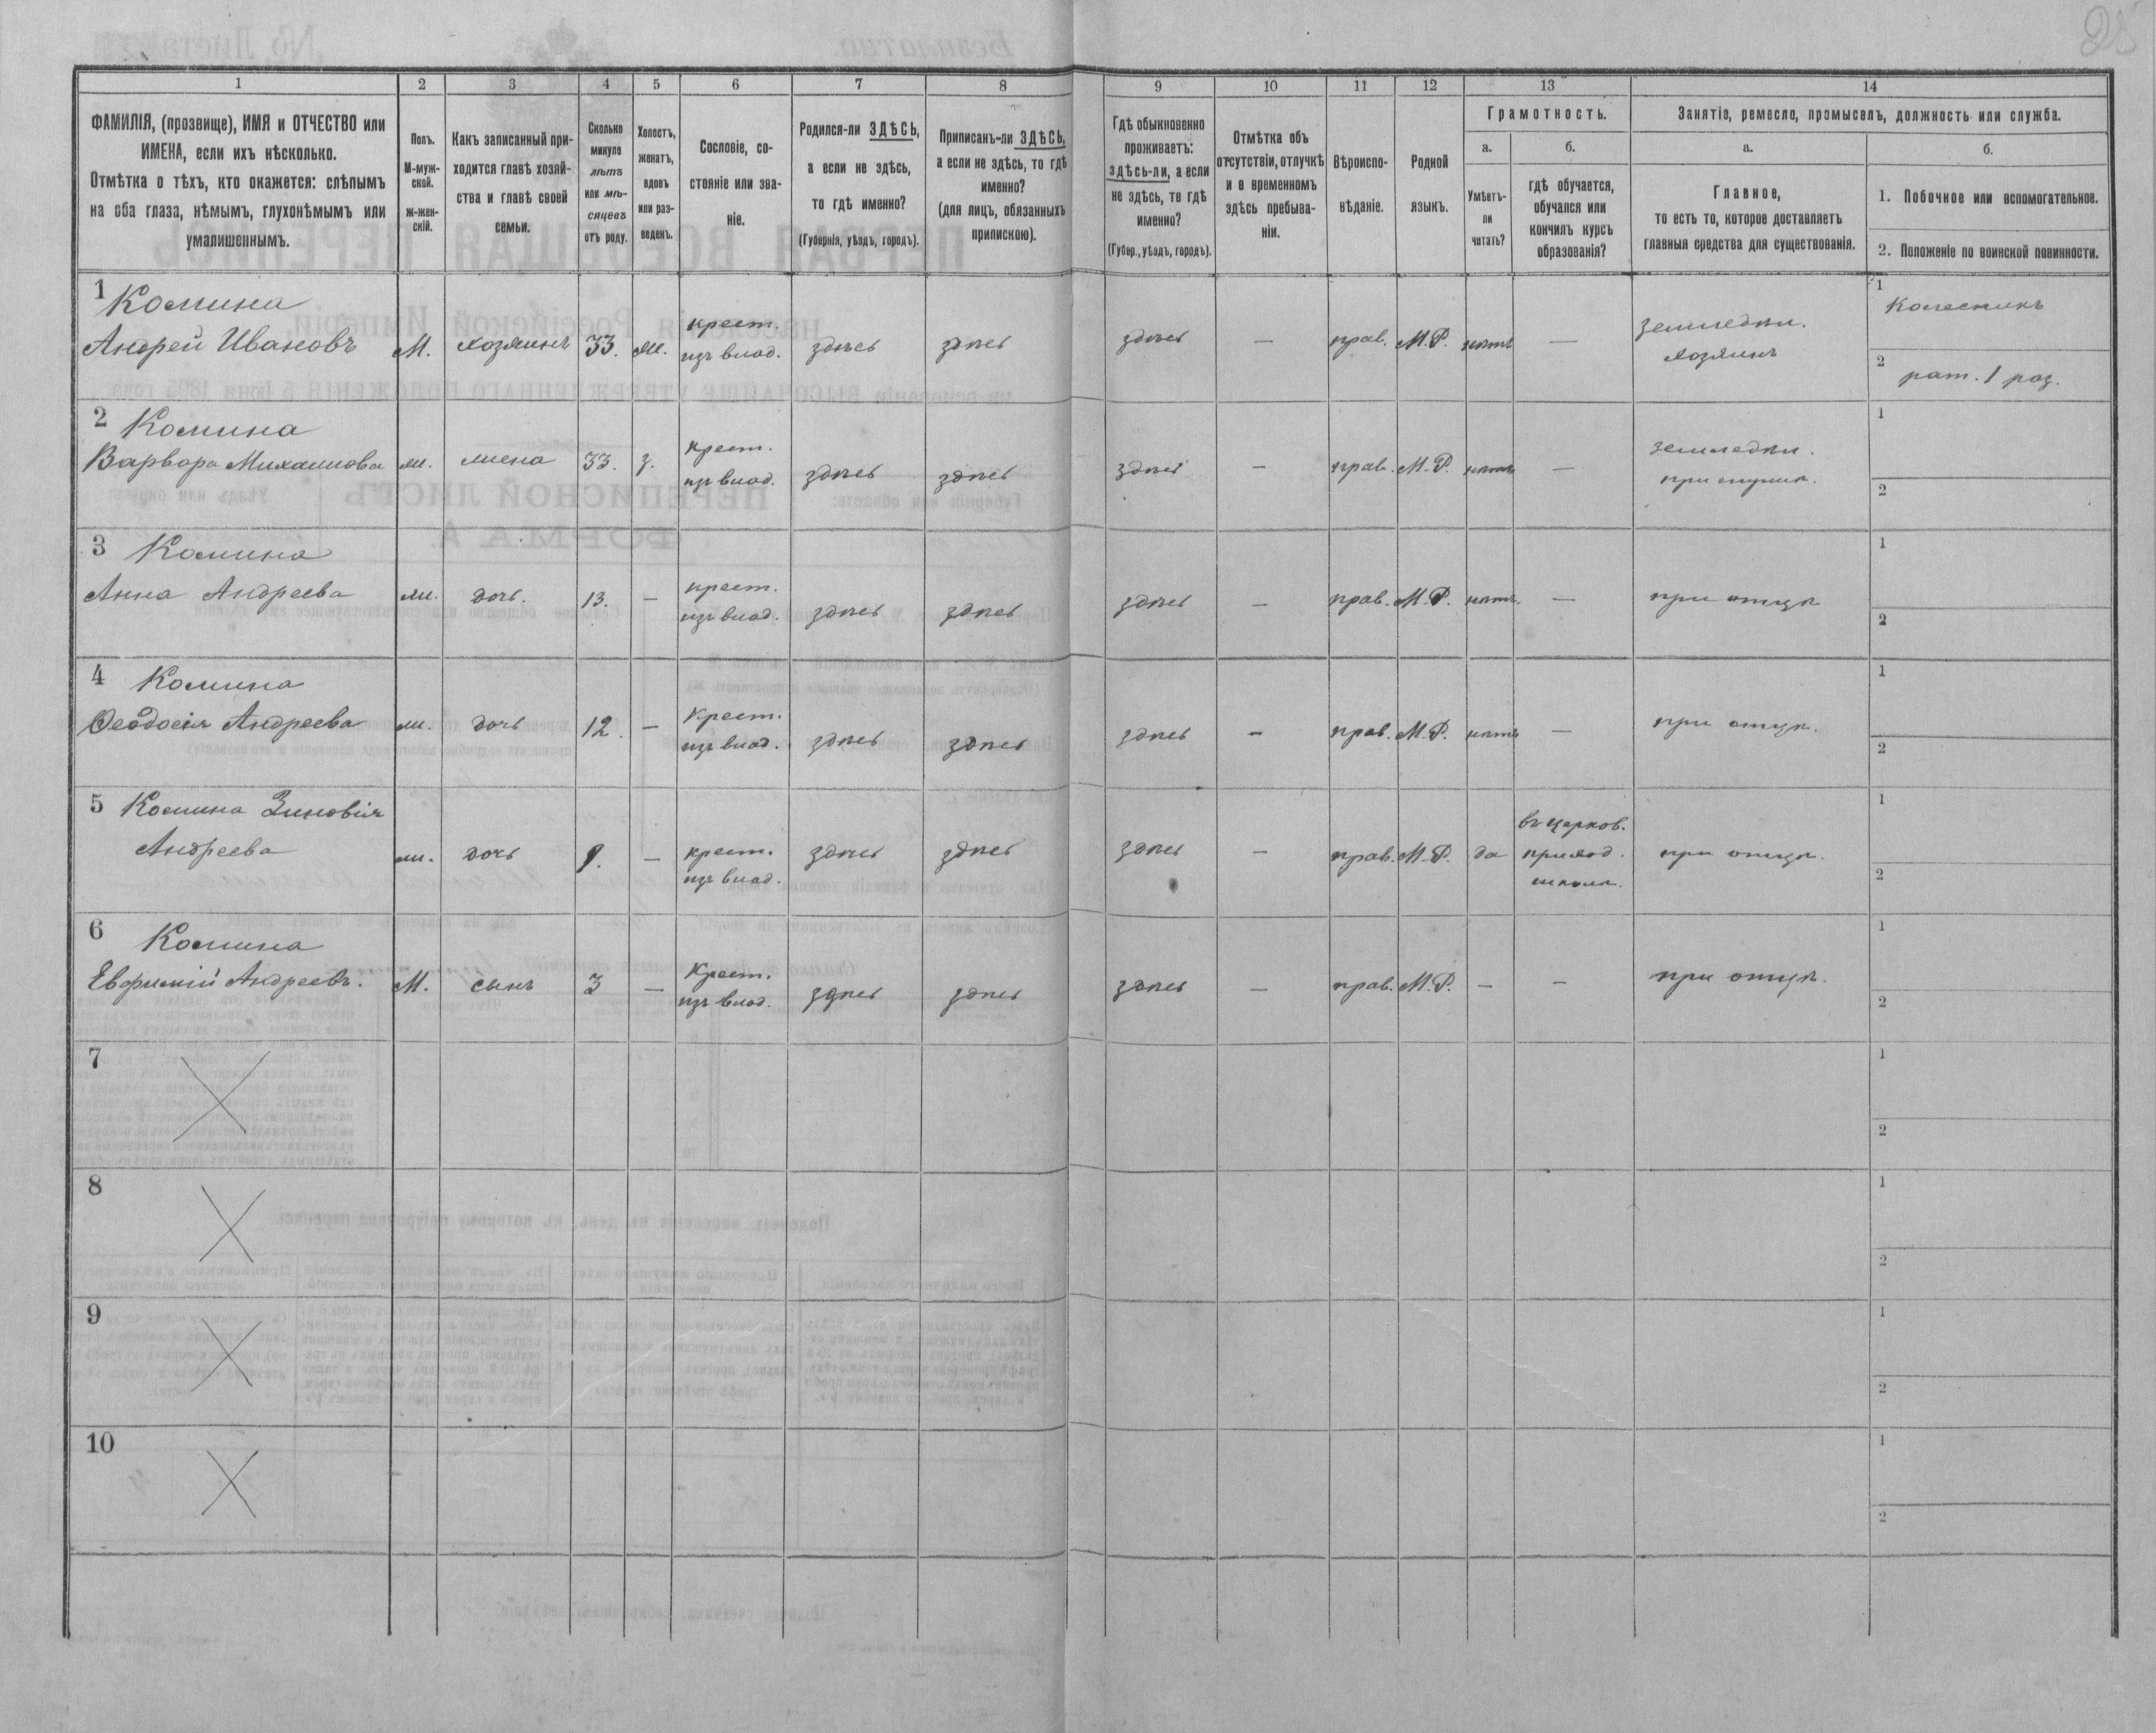 25
1 2 3 4 5 6 7 8 9 10 11 12 13 14
ФАМИЛІЯ, (прозвище), ИМЯ и ОТЧЕСТВО или
ИМЕНА, если ихъ нѣсколько.
Отмѣтка о тѣхъ, кто окажется: слѣпымъ
на оба глаза, нѣмымъ, глухонѣмымъ или
умалишеннымъ.
Полъ.
М-муж-
ской.
ж-жен-
скій.
Какъ записанный при-
ходится главѣ хозяй-
ства и главѣ своей
семьи.
Сколько
минуло
лѣтъ
или мѣ-
сяцевъ
отъ роду.
Холостъ,
женатъ,
вдовъ
или раз-
веденъ.
Сословіе, со-
стояніе или зва-
ніе.
Родился-ли ЗДѢСЬ,
а если не здѣсь,
то гдѣ именно?
(Губернія, уѣздъ, городъ).
Приписанъ-ли ЗДѢСЬ,
а если не здѣсь, то гдѣ
именно?
(для лицъ, обязанныхъ
припискою).
Гдѣ обыкновенно
проживаетъ:
здѣсь-ли, а если
не здѣсь, то гдѣ
именно?
(Губер., уѣздъ, городъ).
Отмѣтка объ
отсутствіи, отлучкѣ
и о временномъ
здѣсь пребыва-
ніи.
Вѣроиспо-
вѣданіе.
Родной
языкъ.
Грамотность.
а.
Умѣетъ-
ли
читать?
б.
гдѣ обучается,
обучался или
кончилъ курсъ
образованія?
Занятіе, ремесло, промыселъ, должность или служба.
а.
Главное,
то есть то, которое доставляетъ
главныя средства для существованія.
б.
1. Побочное или вспомогательное.
2. Положеніе по воинской повинности.
1 Комина
Андрей Ивановъ М. хозяинъ 33. ж. крест.
изъ влад. здѣсь здѣсь здѣсь — прав. М.Р. нѣтъ — земледѣл.
хозяинъ
1 Колесникъ
2 рат. 1 раз.
2 Комина
Варвара Михаилова ж. жена 33. з. крест.
изъ влад. здѣсь здѣсь здѣсь — прав. М.Р. нѣтъ — земледѣл.
при мужѣ.
1
2
3 Комина
Анна Андреева ж. дочь. 13. — крест.
изъ влад. здѣсь здѣсь здѣсь — прав. М.Р. нѣтъ. — при отцѣ
1
2
4 Комина
Ѳеодосія Андреева ж. дочь 12. — Крест.
изъ влад. здѣсь здѣсь здѣсь — прав. М.Р. нѣтъ — при отцѣ.
1
2
5 Комина Зиновія
Андреева ж. дочь 9. — крест.
изъ влад. здѣсь здѣсь здѣсь — прав. М.Р. да въ церков.
приход.
школѣ. при отцѣ.
1
2
6 Комина
Евфимій Андреевъ. М. сынъ 3 — Крест.
изъ влад. здѣсь здѣсь здѣсь — прав. М.Р. — — при отцѣ.
1
2
7
1
2
8
1
2
9
1
2
10
1
2